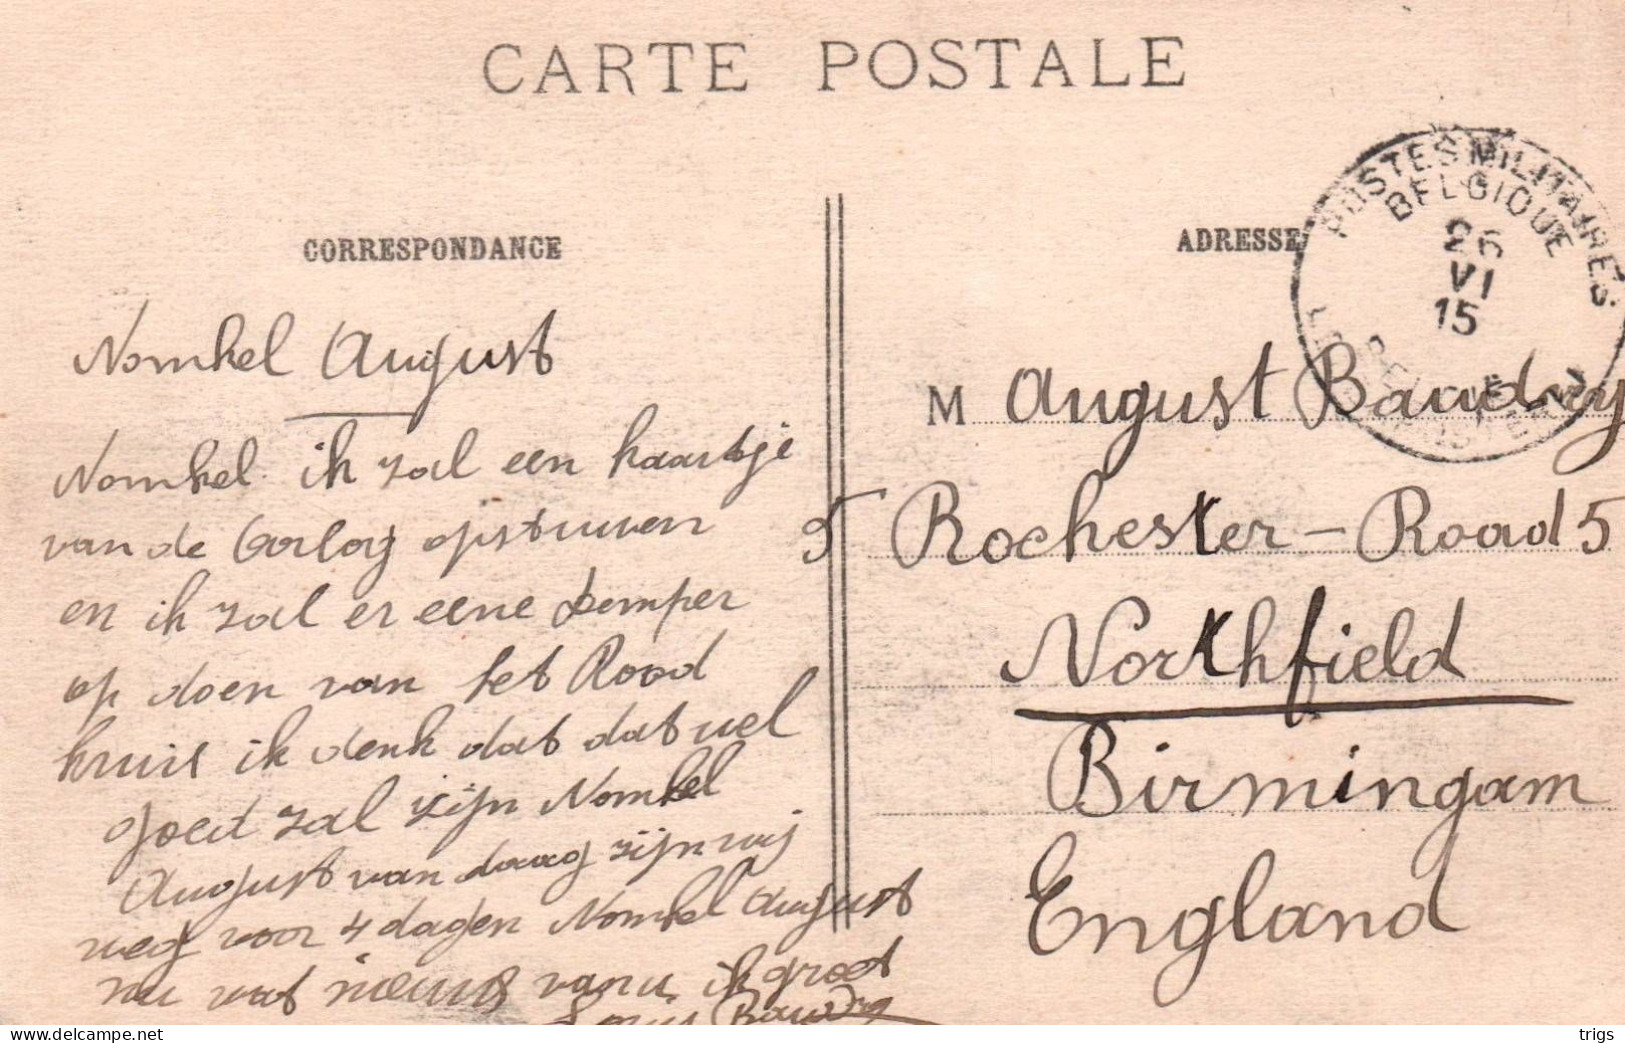 CARTE POSTALE
CORRESPONDANCE
Nomkel August
Nomkel ik zal een kaartje
van de Oorlog opstuuven
en ik zal er eene stemper
op doen van het Rood
kruis ik denk dat dat wel
goed zal zijn Nomkel
August van daag zijn wij
weg voor 4 dagen Nomkel August
nu wat nieuws van u ik groet
Louis Baudry
ADRESSE
POSTES MILITAIRES
BELGIQUE
26
VI
15
M August Baudry
5 Rochester-Road 5
Northfield
Birmingam
England
trigs